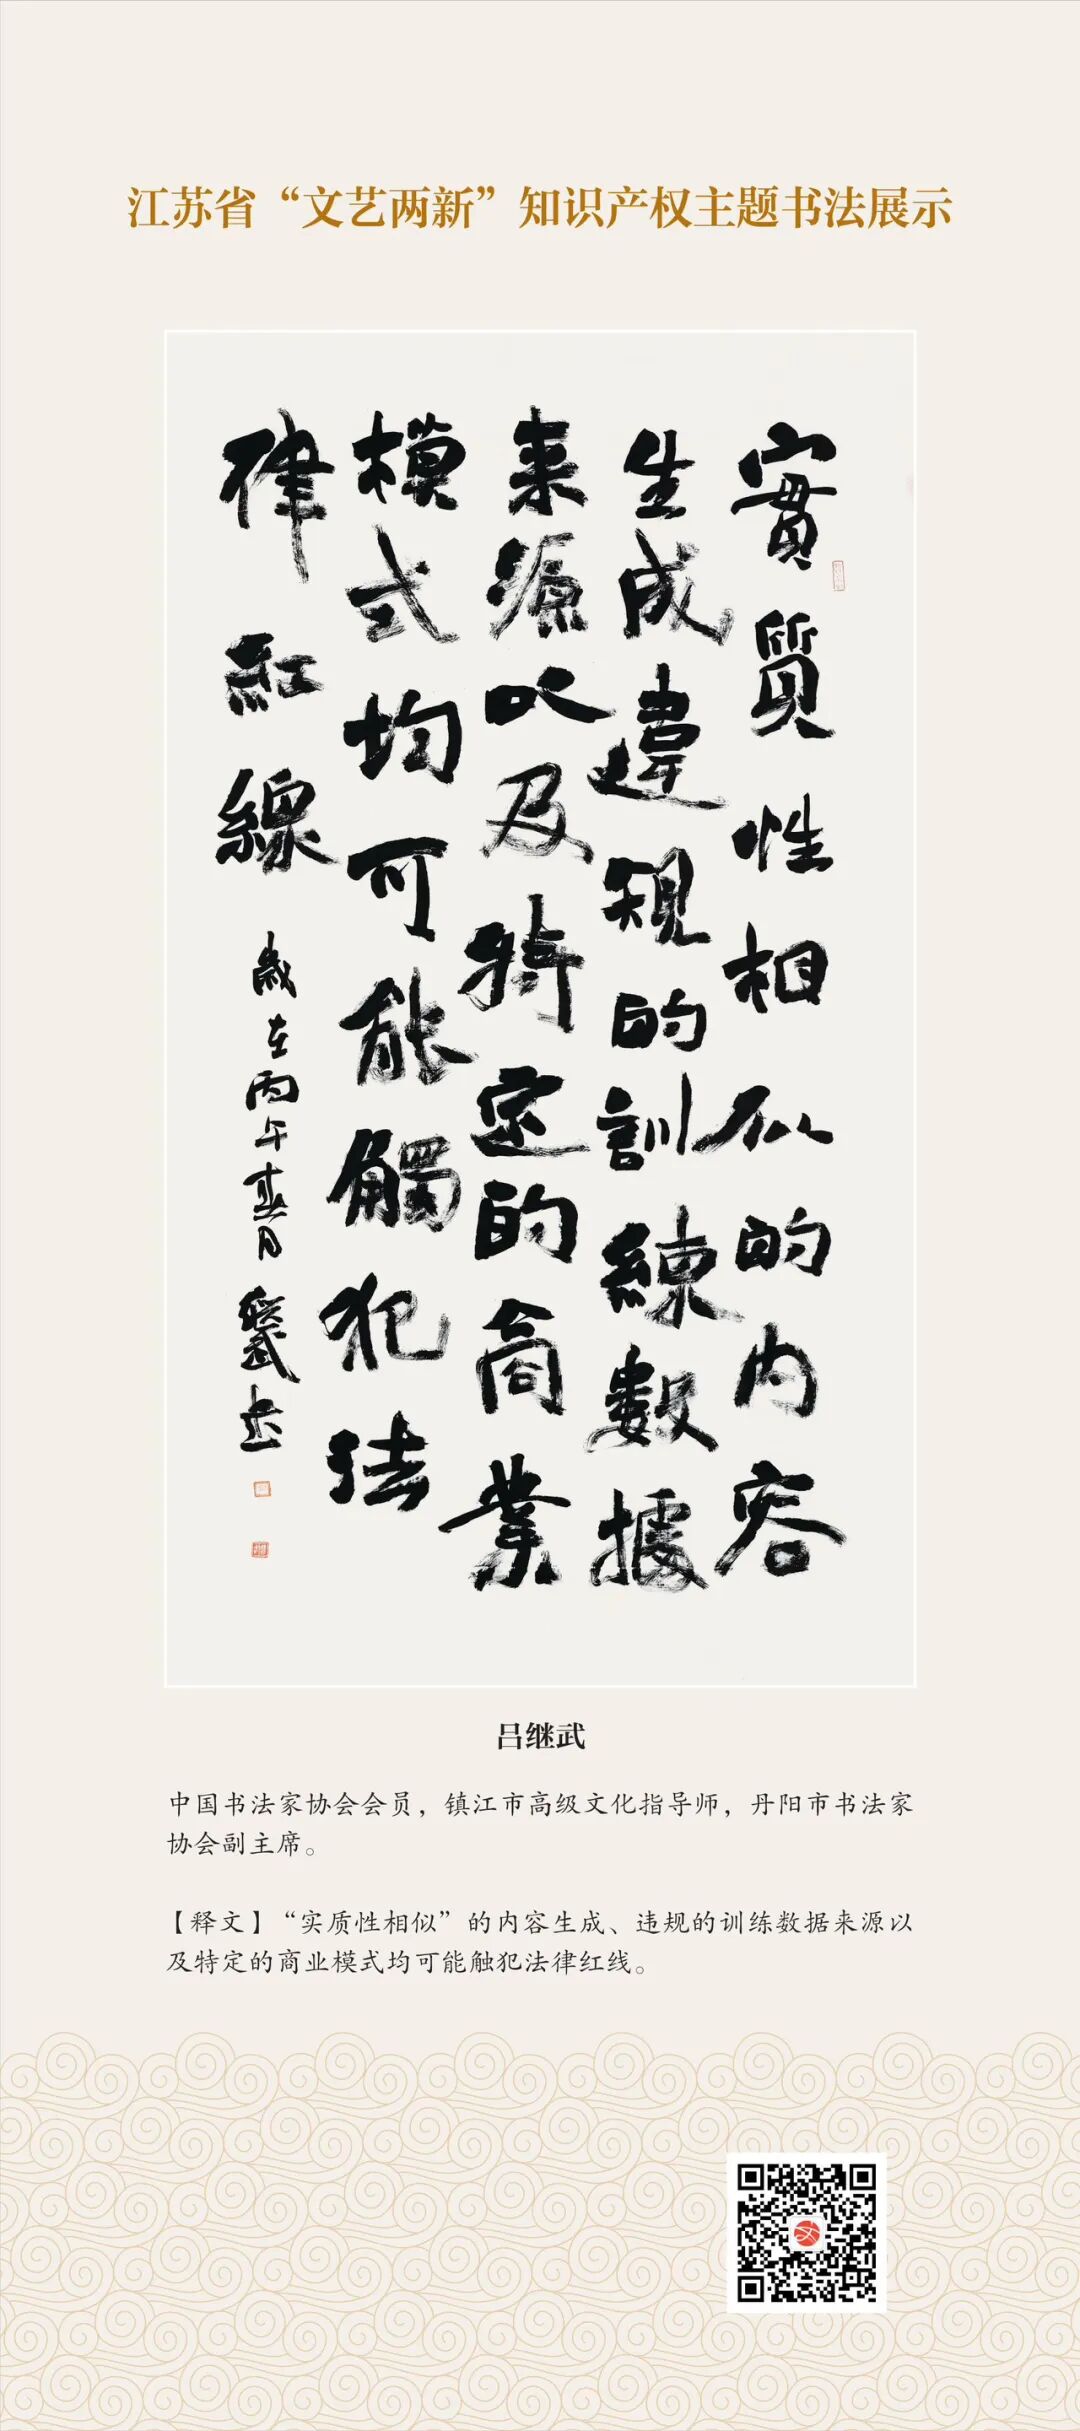 江苏省“文艺两新”知识产权主题书法展示
實質性相似的内容
生成違規的訓練數據
来源以及特定的商業
模式均可能觸犯法
律紅線
歲在丙午春月継武书
吕继武
中国书法家协会会员，镇江市高级文化指导师，丹阳市书法家
协会副主席。
【释文】“实质性相似”的内容生成、违规的训练数据来源以
及特定的商业模式均可能触犯法律红线。